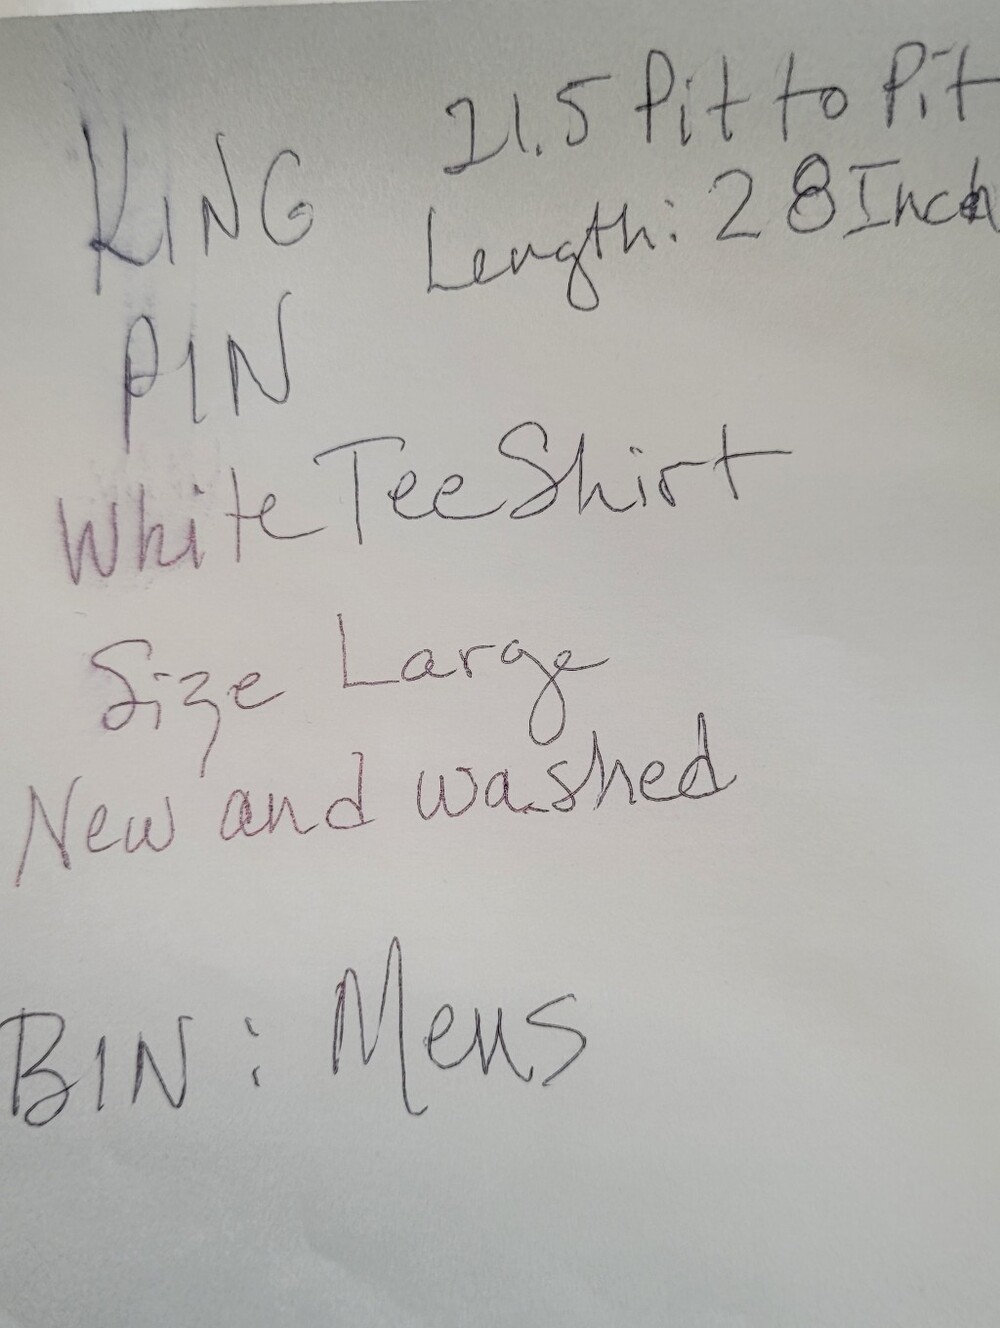 KING
PIN
21.5 Pit to Pit
Length: 28 Inch
White Tee Shirt
Size Large
New and washed
BIN: Mens